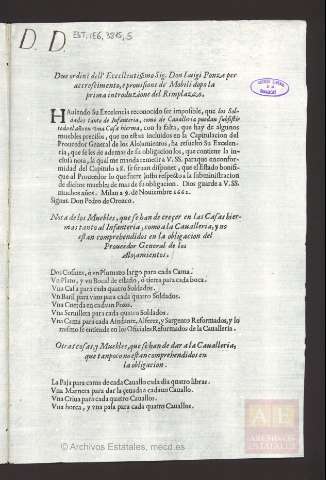 D. D.
EST, 1E6, 3815, 5
Due ordini dell'Excellentissimo Sig. Don Luigi Ponze per
accrescimento, e prouisione de Mobili dopo la
prima introduzione del Rimplazzo.
HAuiendo su Excelencia reconocido ser imposible, que los Sol-
dados tanto de Infanteria, como de Caualleria puedan subsistir
todos los años en vna Casa hierma, con la falta, que hay de algunos
muebles precisos, que no estan incluidos en la Capitulacion del
Proueedor General de los Alojamientos, ha resuelto su Excelen-
cia, que se les de ademas de su obligacion los, que contiene la in-
clusa nota, la qual me manda remetir a VV. SS. para que en confor-
midad del Capitulo 28. se siruan disponer, que el Estado bonifi-
que al Proueedor lo que fuere justo respecto a la subministracion
de dichos muebles de mas de su obligacion. Dios guarde a VV. SS.
muchos años. Milan a 9. de Nouiembre 1662.
Signat. Don Pedro de Orozco.
Nota de los Muebles, que se han de crecer en las Casas hier-
mas tanto al Infanteria, como a la Caualleria, y no
estan comprehendidos en la obligacion del
Proueedor General de los
Alojamientos.
Dos Cossines, ò vn Plumazo largo para cada Cama.
Vn Plato, y vn Bocal de estaño, ò tierra para cada boca.
Vna Caxa para cada quatro Soldados.
Vn Baril para vino para cada quatro Soldados.
Vna Cuerda en cada vn Pozo.
Vna Seruilleta para cada quatro Soldados.
Vna Cama para cada Ayudante, Alferez, y Sargento Reformados, y lo
mismo se entiende en los Oficiales Reformados de la Caualleria.
Otras cosas, y Muebles, que se han de dar a la Caualleria,
que tanpoco no estan comprehendidos en
la obligacion.
La Paja para cama de cada Cauallo cada dia quatro libras.
Vna Marnera para dar la çeuada a cada vn Cauallo.
Vna Criua para cada quatro Cauallos.
Vna horca, y vna pala para cada quatro Cauallos.
AE
ARCHIVOS
ESTATALES
© Archivos Estatales, mecd.es